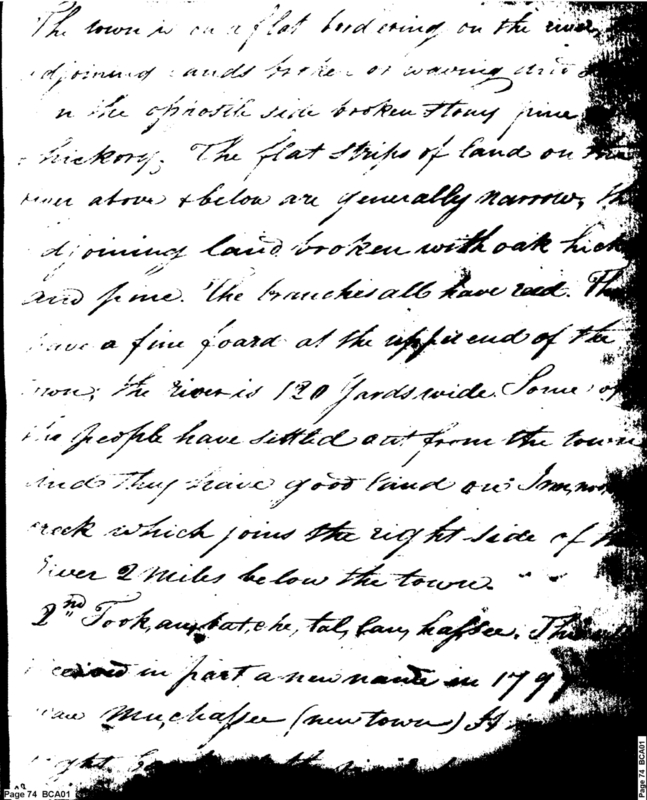 The town is on a flat bordering on the river
adjoining lands broken or waving and
on the opposite side broken stony pine
hickory. The flat strips of land on the
river above & below are generally narrow, the
adjoining land broken with oak hick
and pine. The branches all have reed. They
have a fine foard at the upper end of the
town; the river is 120 yards wide. Some of
the people have settled out from the town
and they have good land on
creek which joins the right side of the
river 2 miles below the town.
2nd Took,au,bat,che, tal,lau,hassee. This
received in part a new name in 1797
Muchassee (new town) It
right
Page 74 BCA01
Page 74 BCA01